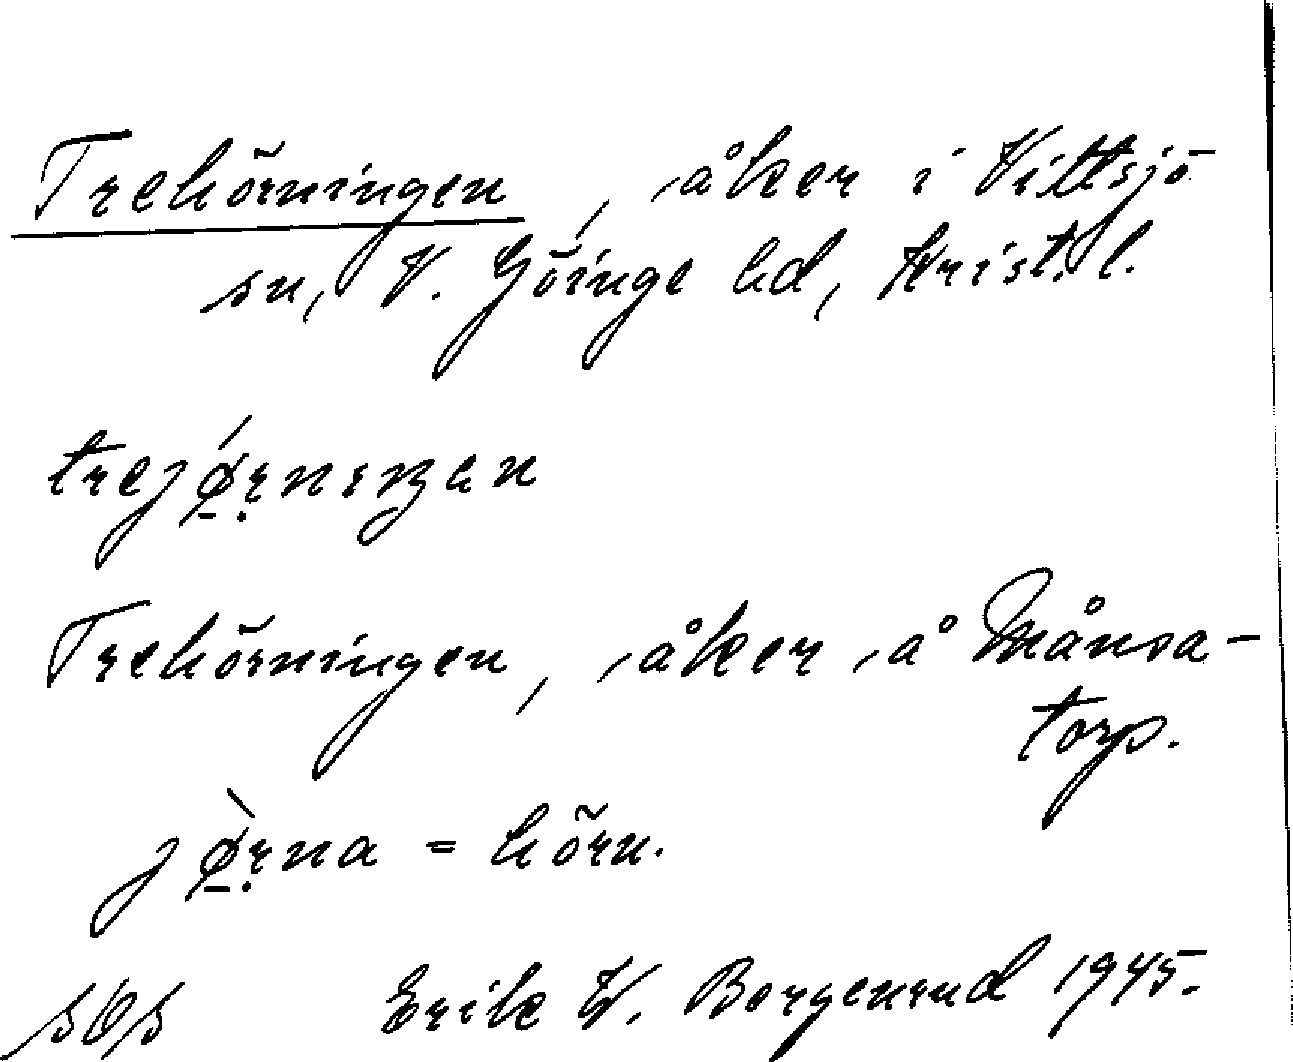 Trehörningen, åker i Vittsjö
sn, V. Göinge hd, Krist. l.
trejǿ̱ṛnıŋen
Trehörningen, åker å Månsa-
torp.
jø̱̀ṛna = hörn.
Erik W. Bergenrud 1945.